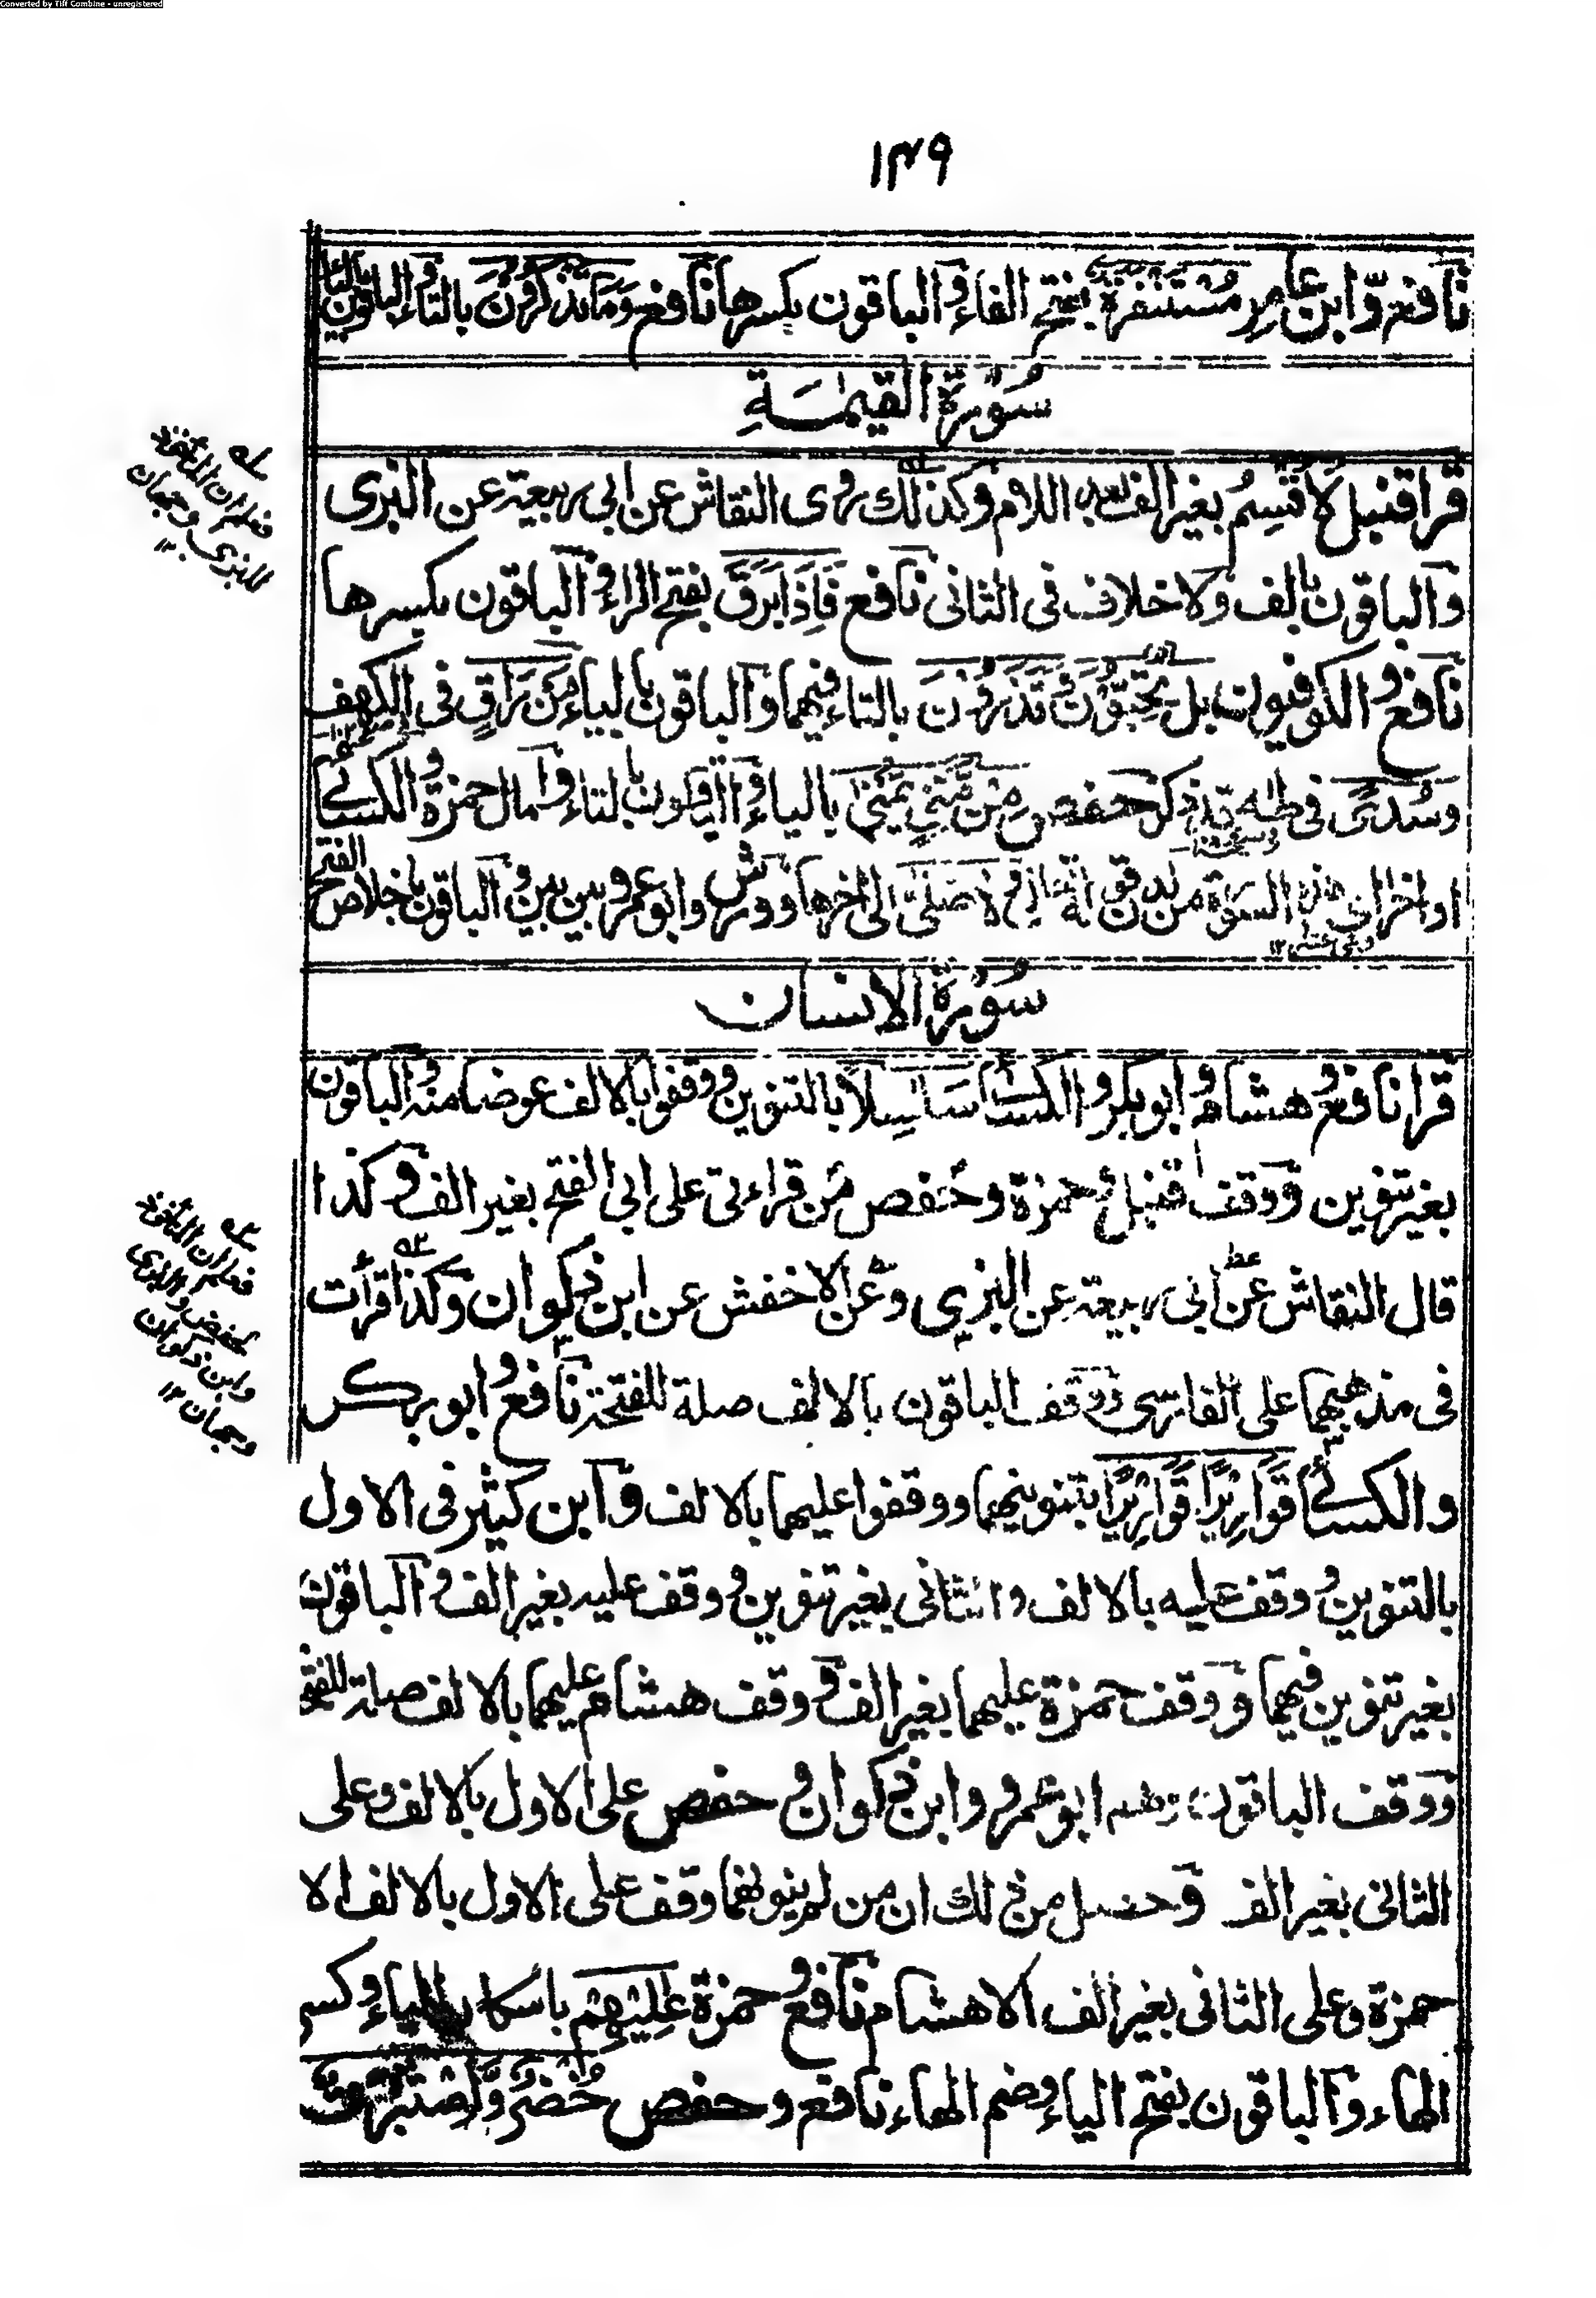 Converted by Tiff Combine - unregistered
١٣٩
نافع وّابن عامر مُّسْتَنْفَرَةٌ بفتح الفاء والباقون بكسرها نافع وَمَا تَذْكُرُوْنَ بالتاء والباقون بالياء
سُوْرَةُ الْقِيٰمَةِ
قرا قنبل لَأُقْسِمُ بغير الف بعد اللام وكذلك روى النقاش عن ابى ربيعة عن البزى
والباقون بالف ولا خلاف فى الثانى نافع فَاِذَا بَرَقَ بفتح الراء والباقون بكسرها
نافع والكوفيون بل تُحِبُّوْنَ وَتَذَرُوْنَ بالتاء فيهما والباقون بالياء مَنْ رَاقٍ فى الكهف
وَسُدًى فى طٰهٰ قد ذكر حفص مِنْ مَّنِيٍّ يُمْنٰى بالياء والباقون بالتاء وامال حمزة والكسائى
اواخر اى هذه السورة من لدن قوله تعالى وَلَا صَلّٰى الى اخرها وورش وابو عمرو بين بين والباقون باخلاص الفتح
سُوْرَةُ الانسان
قرا نافع وهشام وابو بكر والكسائى سَلَاسِلًا بالتنوين ووقفوا بالالف عوضا منه والباقون
بغير تنوين ووقف قنبل وحمزة وحفص من قراءتى على ابى الفتح بغير الف وكذا
قال النقاش عن ابى ربيعة عن البزى وعن الاخفش عن ابن ذكوان وكذا قرأت
فى مذهبهما على الفارسى ووقف الباقون بالالف صلة للفتحة نافع وابو بكر
والكسائى قَوَارِيْرًا قَوَارِيْرًا بتنوينهما ووقفوا عليهما بالالف وابن كثير فى الاول
بالتنوين ووقف عليه بالالف والثانى بغير تنوين ووقف عليه بغير الف والباقون
بغير تنوين فيهما ووقف حمزة عليهما بغير الف ووقف هشام عليهما بالالف صلة للفتحة
ووقف الباقون وهم ابو عمرو وابن ذكوان وحفص على الاول بالالف وعلى
الثانى بغير الف وحصل من ذلك ان من لم ينونهما وقف على الاول بالالف الا
حمزة وعلى الثانى بغير الف الا هشام نافع وحمزة عٰلِيْهِمْ باسكان الياء وكسر
الهاء والباقون بفتح الياء وضم الهاء نافع وحفص خُضْرٌ وَّاِسْتَبْرَقٌ
فعلم ان
للبزى وجهان
فعلم ان
لحفص والبزى
وابن ذكوان
وجهان ١٢